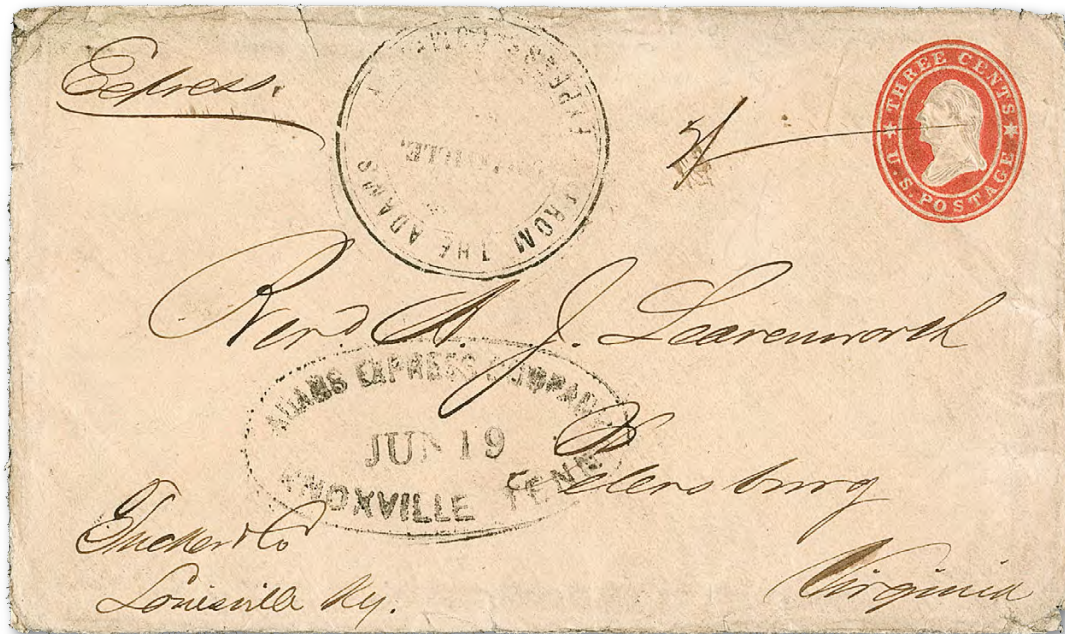 Express.
FROM THE ADAMS EXPRESS COMPANY
LOUISVILLE.
5/
THREE CENTS
U.S. POSTAGE
Rev.d A. J. Leavenworth
ADAMS EXPRESS COMPANY
JUN 19
KNOXVILLE TENN
Petersburg
Virginia
Tucker & Co
Louisville Ky.